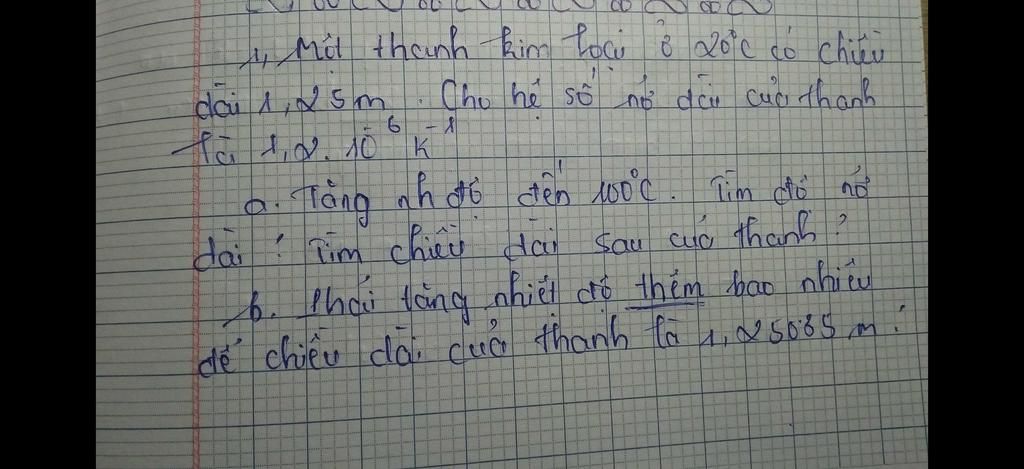 1, Một thanh kim loại ở 20°C có chiều
dài 1,25m. Cho hệ số nở dài của thanh
là 1,2. 10⁻⁶ K⁻¹
a. Tăng nh độ đến 100°C. Tìm độ nở
dài? Tìm chiều dài sau của thanh?
b. Phải tăng nhiệt độ thêm bao nhiêu
để chiều dài của thanh là 1,25085 m?